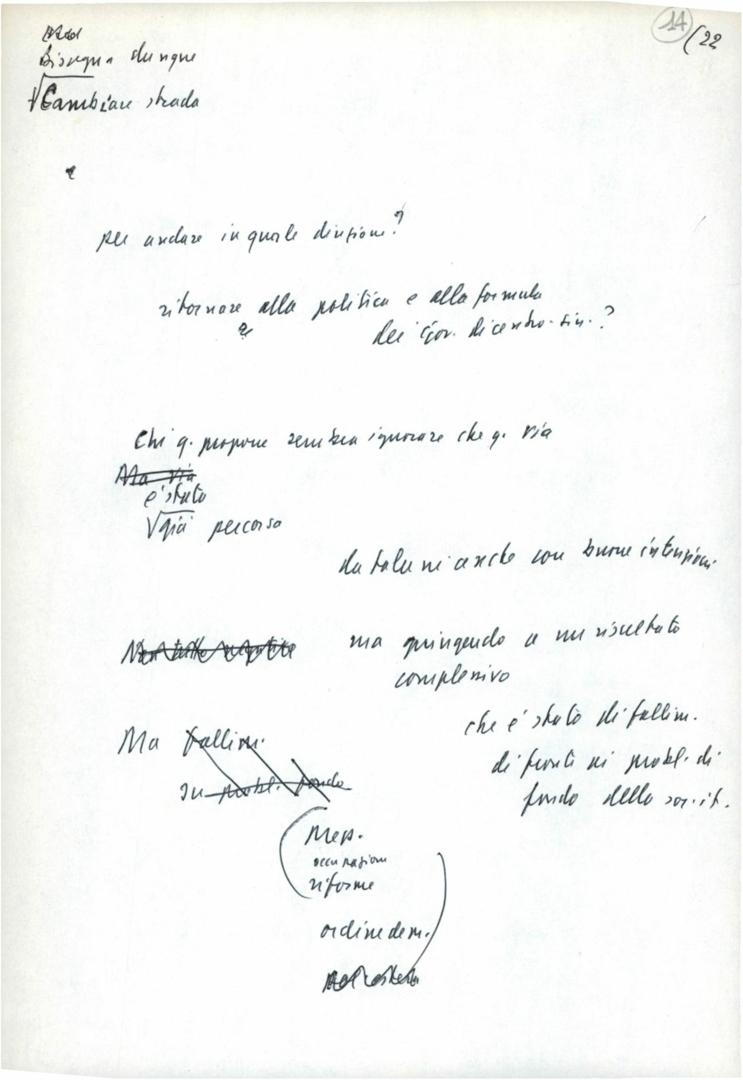 14 (22
Bisogna dunque
Cambiare strada
e
per andare in quale direzione?
ritornare alla politica e alla formula
dei gov. di centro-sin.?
Chi q. propone sembra ignorare che q. via
Ma via
è stato
già percorsa
da taluni anche con buone intenzioni
ma giungendo a un risultato
complessivo
che è stato di fallim.
Ma fallim.
di fronte ai probl. di
su probl. fondo
fondo della soc. it.
Mezz.
occupazione
riforme
ordine dem.